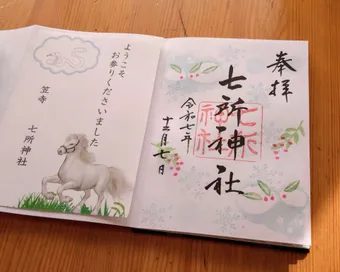 奉拝
七所神社
七所神社
令和七年
十二月七日
ようこそ
お参りくださいました
笠寺
七所神社